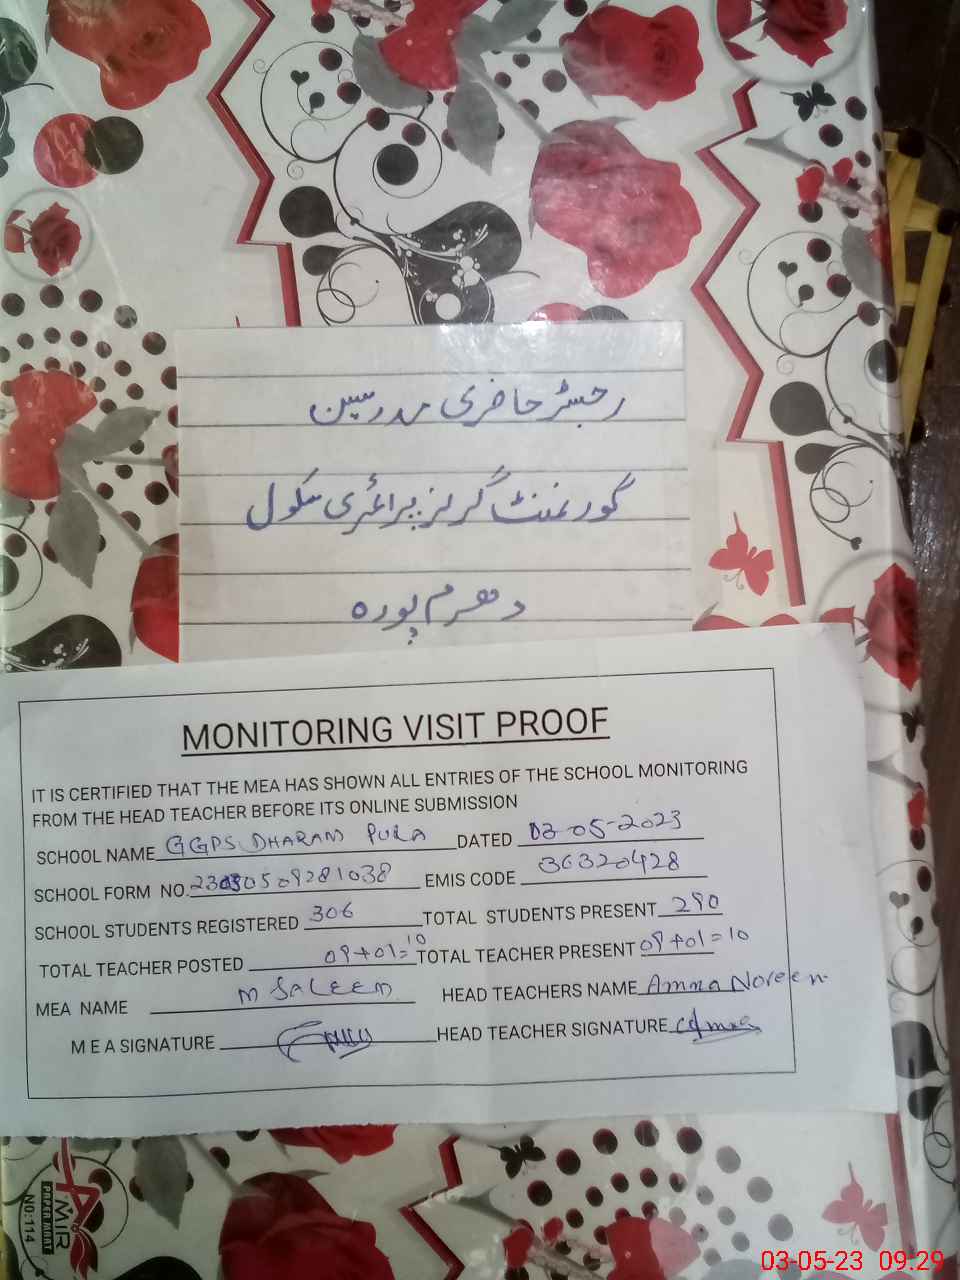 رجسٹر حاضری مدرسین
گورنمنٹ گرلز پرائمری سکول
دھرم پورہ
MONITORING VISIT PROOF
IT IS CERTIFIED THAT THE MEA HAS SHOWN ALL ENTRIES OF THE SCHOOL MONITORING
FROM THE HEAD TEACHER BEFORE ITS ONLINE SUBMISSION
SCHOOL NAME GGPS DHARAM PURA DATED 03-05-2023
SCHOOL FORM NO. EMIS CODE 36320428
SCHOOL STUDENTS REGISTERED 306 TOTAL STUDENTS PRESENT 290
TOTAL TEACHER POSTED 09+01=10 TOTAL TEACHER PRESENT 09+01=10
MEA NAME M SALEEM HEAD TEACHERS NAME Amna Noreen
M E A SIGNATURE HEAD TEACHER SIGNATURE
AMIR
PAPER MART
NO:114
03-05-23 09.29